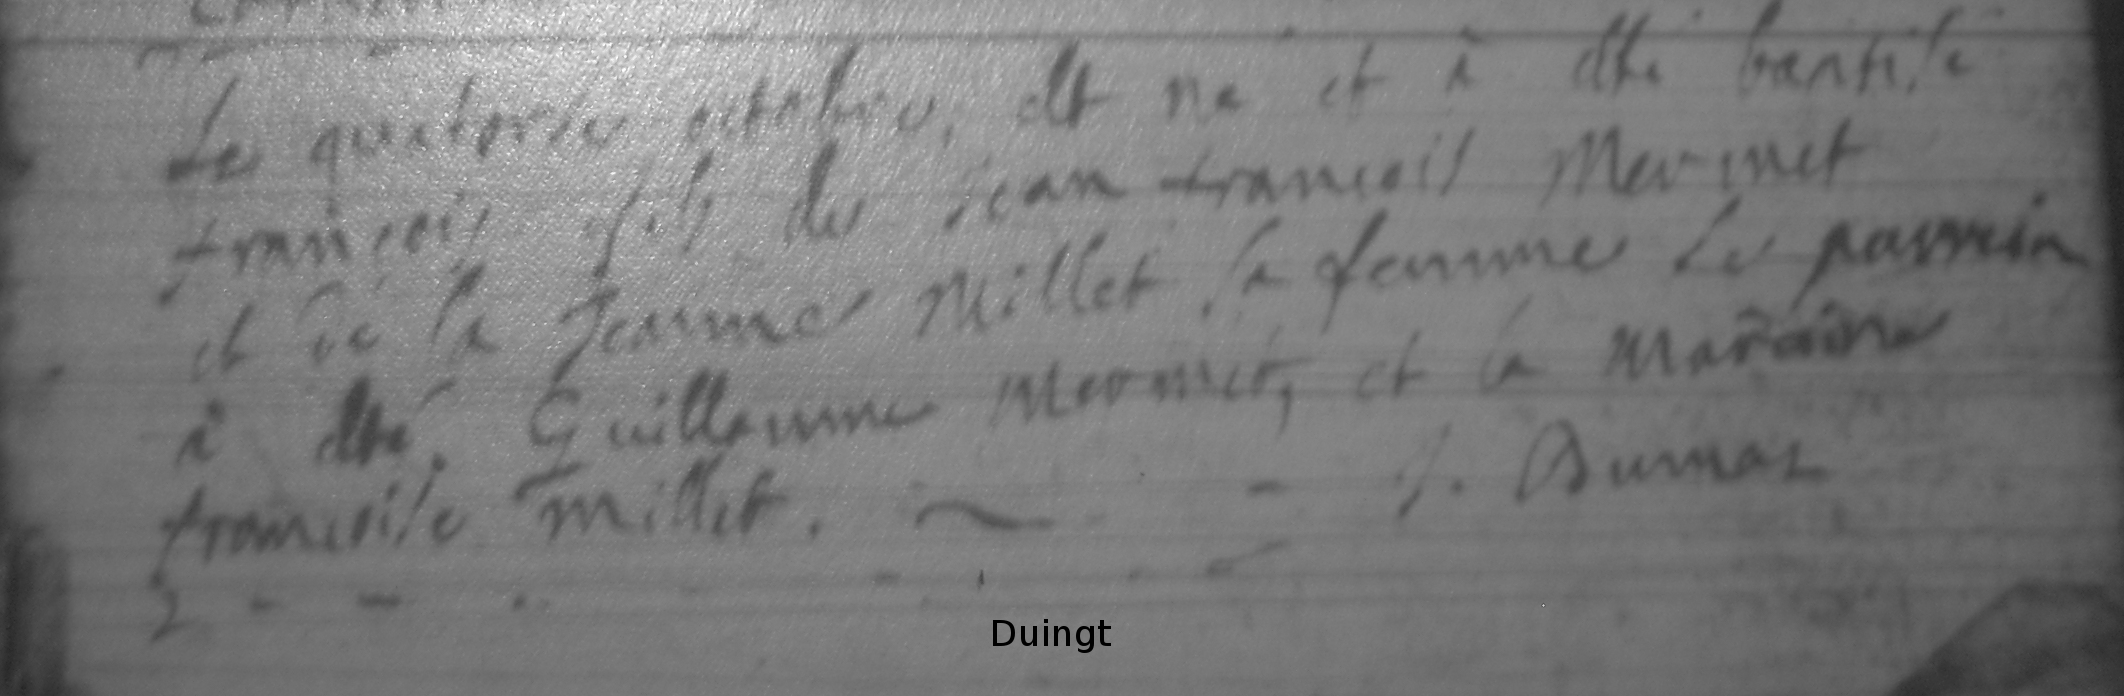 Le quatorse octobre, est né et à esté baptisé
françois fils de jean françois Mermet
et de la Jeanne Millet sa femme Le parrein
à esté Guillaume Mermet, et la Maraine
francoise Millet. J. Dumaz
Duingt